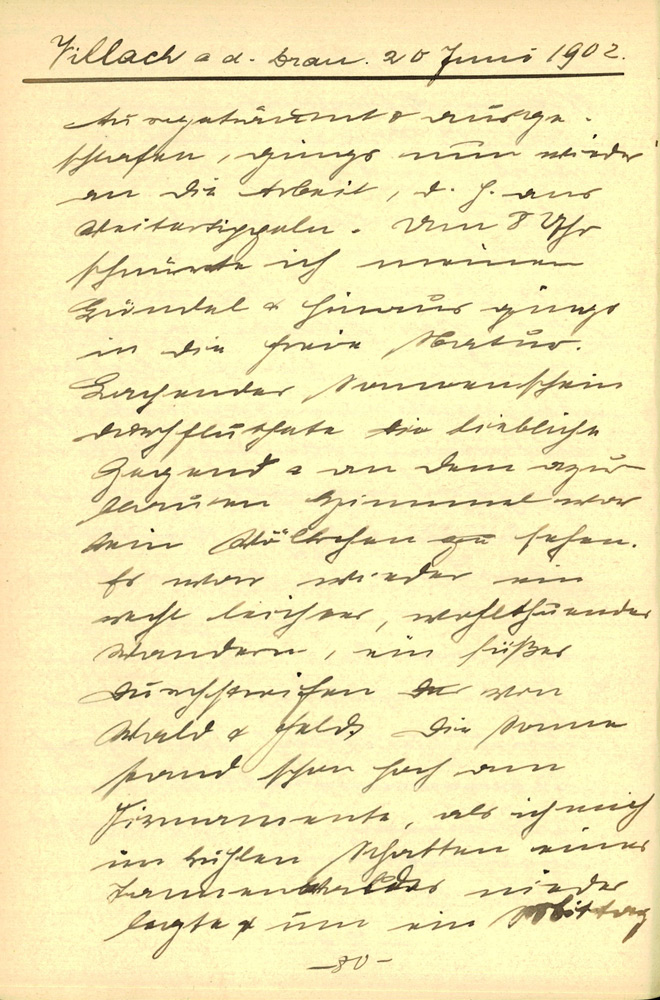 Villach a d. Drau. 20 Juni 1902.
Ausgeträumt & ausge-
schlafen, gings nun wieder
an die Arbeit, d. h. ans
Weitertippeln. Um 8 Uhr
schnürte ich meinen
Bündel & hinaus gings
in die freie Natur.
Lachender Sonnenschein
durchfluthete die liebliche
Gegend & an dem azur
blauen Himmel war
kein Wölkchen zu sehen.
Es war wieder ein
recht leichtes, wohlthuendes
Wandern, ein süßes
Durchstreifen von
Wald & Feld. Die Sonne
stand schon hoch am
Firmamente, als ich mich
im kühlen Schatten eines
Tannenwaldes nieder
legte & um ein Mittag
- 80 -